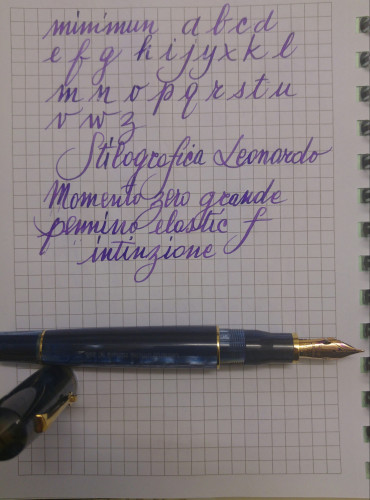 minimun a b c d
e f g h i j y x k l
m n o p q r s t u
v w z
Stilografica Leonardo
Momento zero grande
pennino elastic f
intinzione